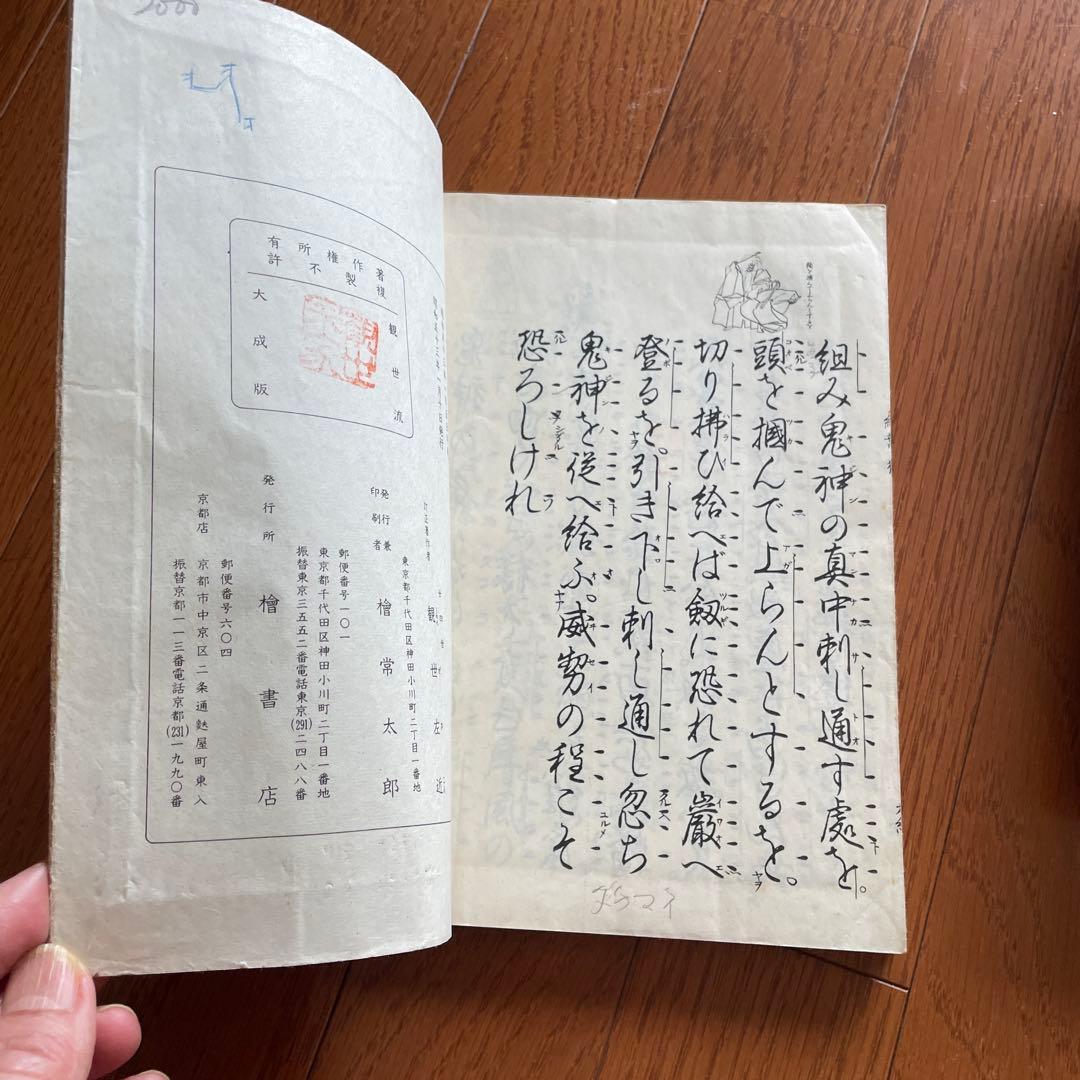 組み鬼神の真中刺し通す處を。
頭を摑んで上らんとするを。
切り拂ひ給へば劔に恐れて巖へ
登るを。引き下し刺し通し忽ち
鬼神を從へ給ふ。威勢の程こそ
恐ろしけれ
著作権所有
複製不許
観世流
大成版
訂正著作者
観世左近
東京都千代田区神田小川町二丁目一番地
発行兼
印刷者
檜常太郎
郵便番号一〇一
東京都千代田区神田小川町二丁目一番地
振替東京三五五二番電話東京(291)二四八八番
発行所
檜書店
郵便番号六〇四
京都店
京都市中京区二条通麩屋町東入
振替京都一一三番電話京都(231)一九九〇番